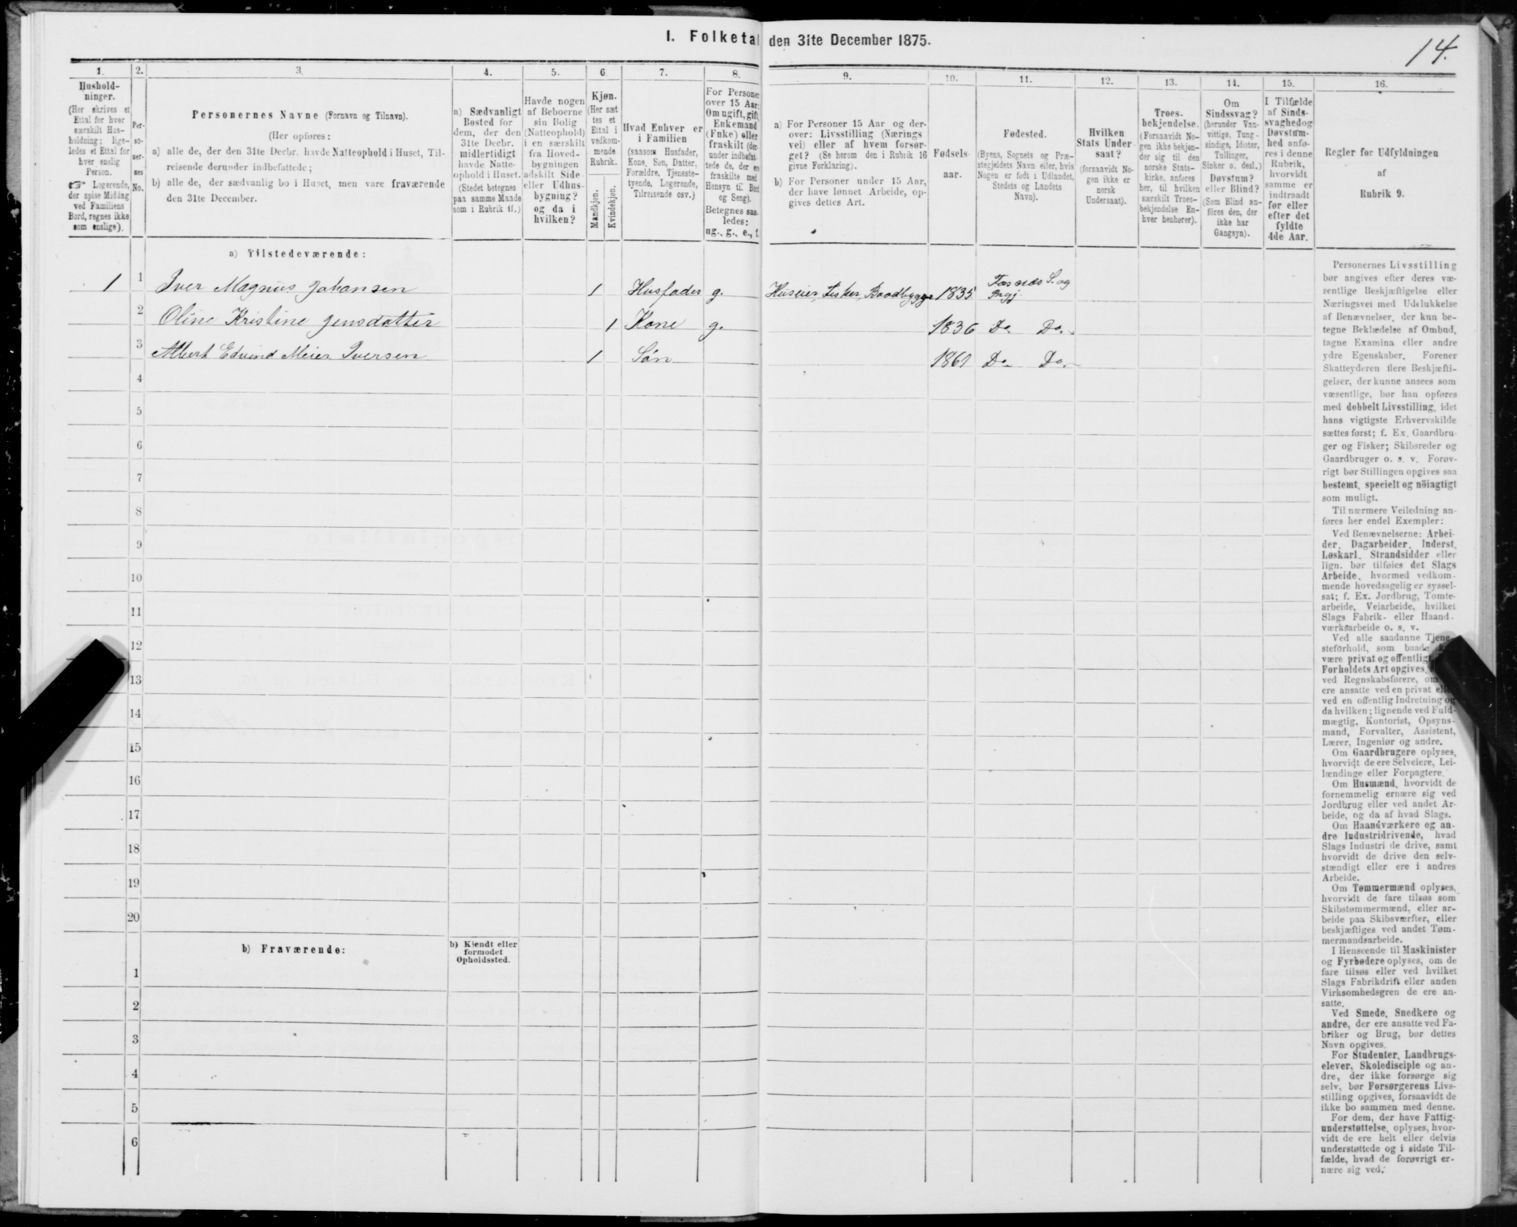 I. Folketal den 31te December 1875.
14.
1.
Hushold-
ninger.
(Her skrives et
Ettal for hver
særskilt Hus-
holdning; lige-
ledes et Ettal for
hver enslig
Person.
☞ Logerende,
der spise Middag
ved Familiens
Bord, regnes ikke
som enslige).
2.
Per-
so-
ner-
nes
No.
3.
Personernes Navne (Fornavn og Tilnavn).
(Her opføres:
a) alle de, der den 31te Decbr. havde Natteophold i Huset, Til-
reisende derunder indbefattede;
b) alle de, der sædvanlig bo i Huset, men vare fraværende
den 31te December.
4.
a) Sædvanligt
Bosted for
dem, der den
31te Decbr.
midlertidigt
havde Natte-
ophold i Huset.
(Stedet betegnes
paa samme Maade
som i Rubrik 11.)
5.
Havde nogen
af Beboerne
sin Bolig
(Natteophold)
i en særskilt
fra Hoved-
bygningen
adskilt Side-
eller Udhus-
bygning?
og da i
hvilken?
6.
Kjøn.
(Her sæt-
tes et
Ettal i
vedkom-
mende
Rubrik.
Mandkjøn.
Kvindekjøn.
7.
Hvad Enhver er
i Familien
(saasom Husfader,
Kone, Søn, Datter,
Forældre, Tjeneste-
tyende, Logerende,
Tilreisende osv.)
8.
For Personer
over 15 Aar:
Om ugift, gift,
Enkemand
(Enke) eller
fraskilt
Betegnes saa-
ledes:
ug., g., e., f.
9.
a) For Personer 15 Aar og der-
over: Livsstilling (Nærings-
vei) eller af hvem forsør-
get? (Se herom den i Rubrik 16
givne Forklaring).
b) For Personer under 15 Aar,
der have lønnet Arbeide, op-
gives dettes Art.
10.
Fødsels-
aar.
11.
Fødested.
(Byens, Sognets og Præ-
stegjeldets Navn eller, hvis
Nogen er født i Udlandet,
Stedets og Landets
Navn).
12.
Hvilken
Stats Under-
saat?
(forsaavidt No-
gen ikke er
norsk
Undersaat).
13.
Troes-
bekjendelse.
(Forsaavidt No-
gen ikke bekjen-
der sig til den
norske Stats-
kirke, anføres
her, til hvilken
særskilt Troes-
bekjendelse En-
hver henhører).
14.
Om
Sindssvag?
(herunder Van-
vittige, Tung-
sindige, Idioter,
Tullinger,
Sinker o. desl.)
Døvstum?
eller Blind?
(Som Blind an-
føres den, der
ikke har
Gangsyn).
15.
I Tilfælde
af Sinds-
svaghed og
Døvstum-
hed anfø-
res i denne
Rubrik,
hvorvidt
samme er
indtraadt
før eller
efter det
fyldte
4de Aar.
16.
Regler for Udfyldningen
af
Rubrik 9.
a) Tilstedeværende:
1 1 Iver Magnus Johansen 1 Husfader g. Huseier, Fisker, Baadbygger 1835
2 Oline Kristine Jensdatter 1 Kone g. 1836 Do Do
3 Albert Edvind Meier Iversen 1 Søn Do Do
4
5
6
7
8
9
10
11
12
13
14
15
16
17
18
19
20
b) Fraværende:
b) Kjendt eller
formodet
Opholdssted.
1
2
3
4
5
6
Personernes Livsstilling
bør angives efter deres væ-
sentlige Beskjæftigelse eller
Næringsvei med Udelukkelse
af Benævnelser, der kun be-
tegne Beklædelse af Ombud,
tagne Examina eller andre
ydre Egenskaber. Forener
Skatteyderen flere Beskjæfti-
gelser, der kunne ansees som
væsentlige, bør han opføres
med dobbelt Livsstilling, idet
hans vigtigste Erhvervskilde
sættes først; f. Ex. Gaardbru-
ger og Fisker; Skibsreder og
Gaardbruger o. s. v. Forøv-
rigt bør Stillingen opgives saa
bestemt, specielt og nöiagtigt
som muligt.
Til nærmere Veiledning an-
føres her endel Exempler:
Ved Benævnelserne: Arbei-
der, Dagarbeider, Inderst,
Løskarl, Strandsidder eller
lign. bør tilføies det Slags
Arbeide, hvormed vedkom-
mende hovedsagelig er syssel-
sat; f. Ex. Jordbrug, Tomte-
arbeide, Veiarbeide, hvilket
Slags Fabrik- eller Haand-
værksarbeide o. s. v.
Ved alle saadanne Tjene-
steforhold, som baade
være privat og offentligt,
Forholdets Art opgives,
ved Regnskabsførere, om
ere ansatte ved en privat eller
ved en offentlig Indretning og
da hvilken; lignende ved Fuld-
mægtig, Kontorist, Opsyns-
mand, Forvalter, Assistent,
Lærer, Ingeniør og andre.
Om Gaardbrugere oplyses,
hvorvidt de ere Selveiere, Lei-
lændinge eller Forpagtere.
Om Husmænd, hvorvidt de
fornemmelig ernære sig ved
Jordbrug eller ved andet Ar-
beide, og da af hvad Slags.
Om Haandværkere og an-
dre Industridrivende, hvad
Slags Industri de drive, samt
hvorvidt de drive den selv-
stændigt eller ere i andres
Arbeide.
Om Tømmermænd oplyses,
hvorvidt de fare tilsøs som
Skibstømmermænd, eller ar-
beide paa Skibsværfter, eller
beskjæftiges ved andet Tøm-
mermandsarbeide.
I Henseende til Maskinister
og Fyrbødere oplyses, om de
fare tilsøs eller ved hvilket
Slags Fabrikdrift eller anden
Virksomhedsgren de ere an-
satte.
Ved Smede, Snedkere og
andre, der ere ansatte ved Fa-
briker og Brug, bør dettes
Navn opgives.
For Studenter, Landbrugs-
elever, Skoledisciple og an-
dre, der ikke forsørge sig
selv, bør Forsørgerens Livs-
stilling opgives, forsaavidt de
ikke bo sammen med denne.
For dem, der have Fattig-
understøttelse, oplyses, hvor-
vidt de ere helt eller delvis
understøttede og i sidste Til-
fælde, hvad de forøvrigt er-
nære sig ved.